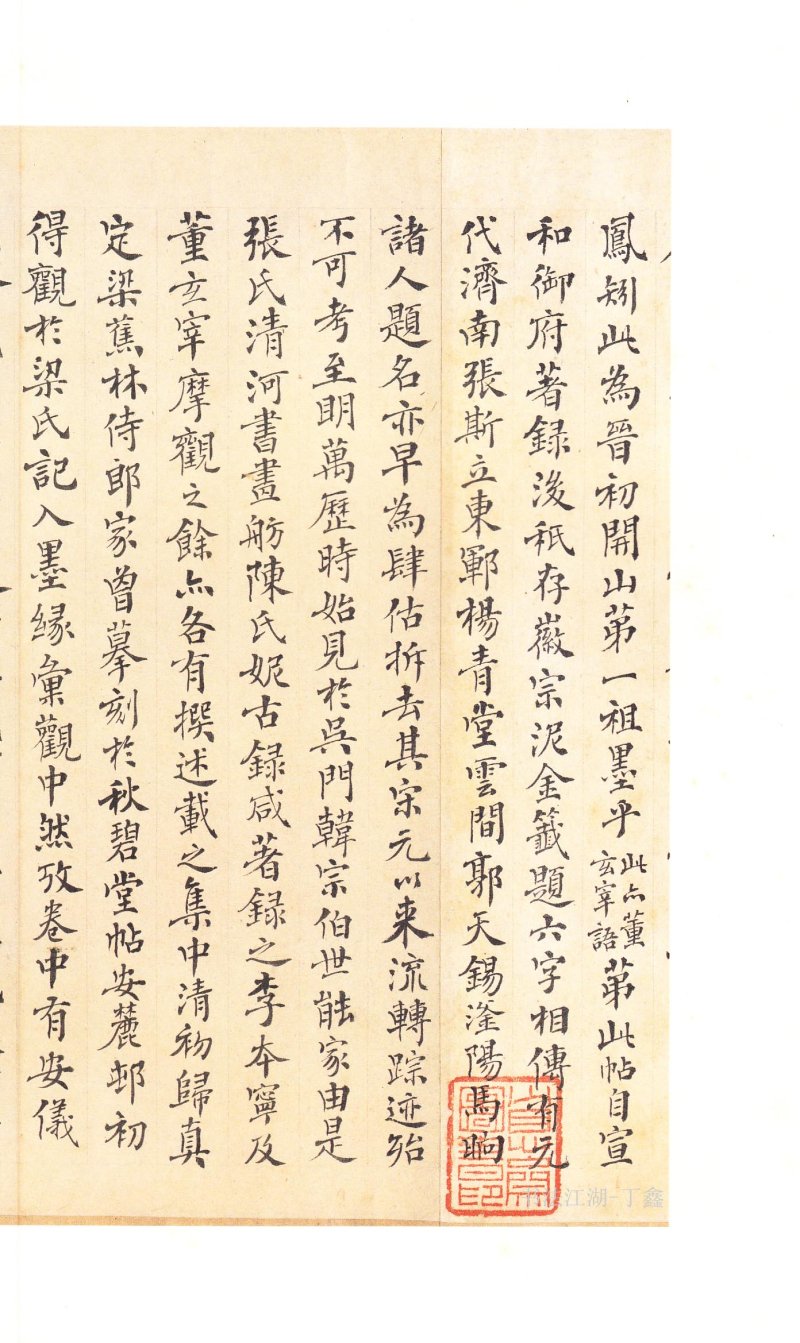 鳳矧此為晉初開山第一祖墨乎此亦董玄宰語第此帖自宣
和御府著録後秖存徽宗泥金籤題六字相傳有元
代濟南張斯立東鄆楊青堂雲間郭天錫滏陽馬晌
諸人題名亦早為肆估拆去其宋元以来流轉踪迹殆
不可考至明萬歷時始見於吳門韓宗伯世能家由是
張氏清河書畫舫陳氏妮古録咸著録之李本寧及
董玄宰摩觀之餘亦各有撰述載之集中清初歸真
定梁蕉林侍郎家曾摹刻於秋碧堂帖安麓邨初
得觀於梁氏記入墨緣彙觀中然攷卷中有安儀
江湖-丁鑫